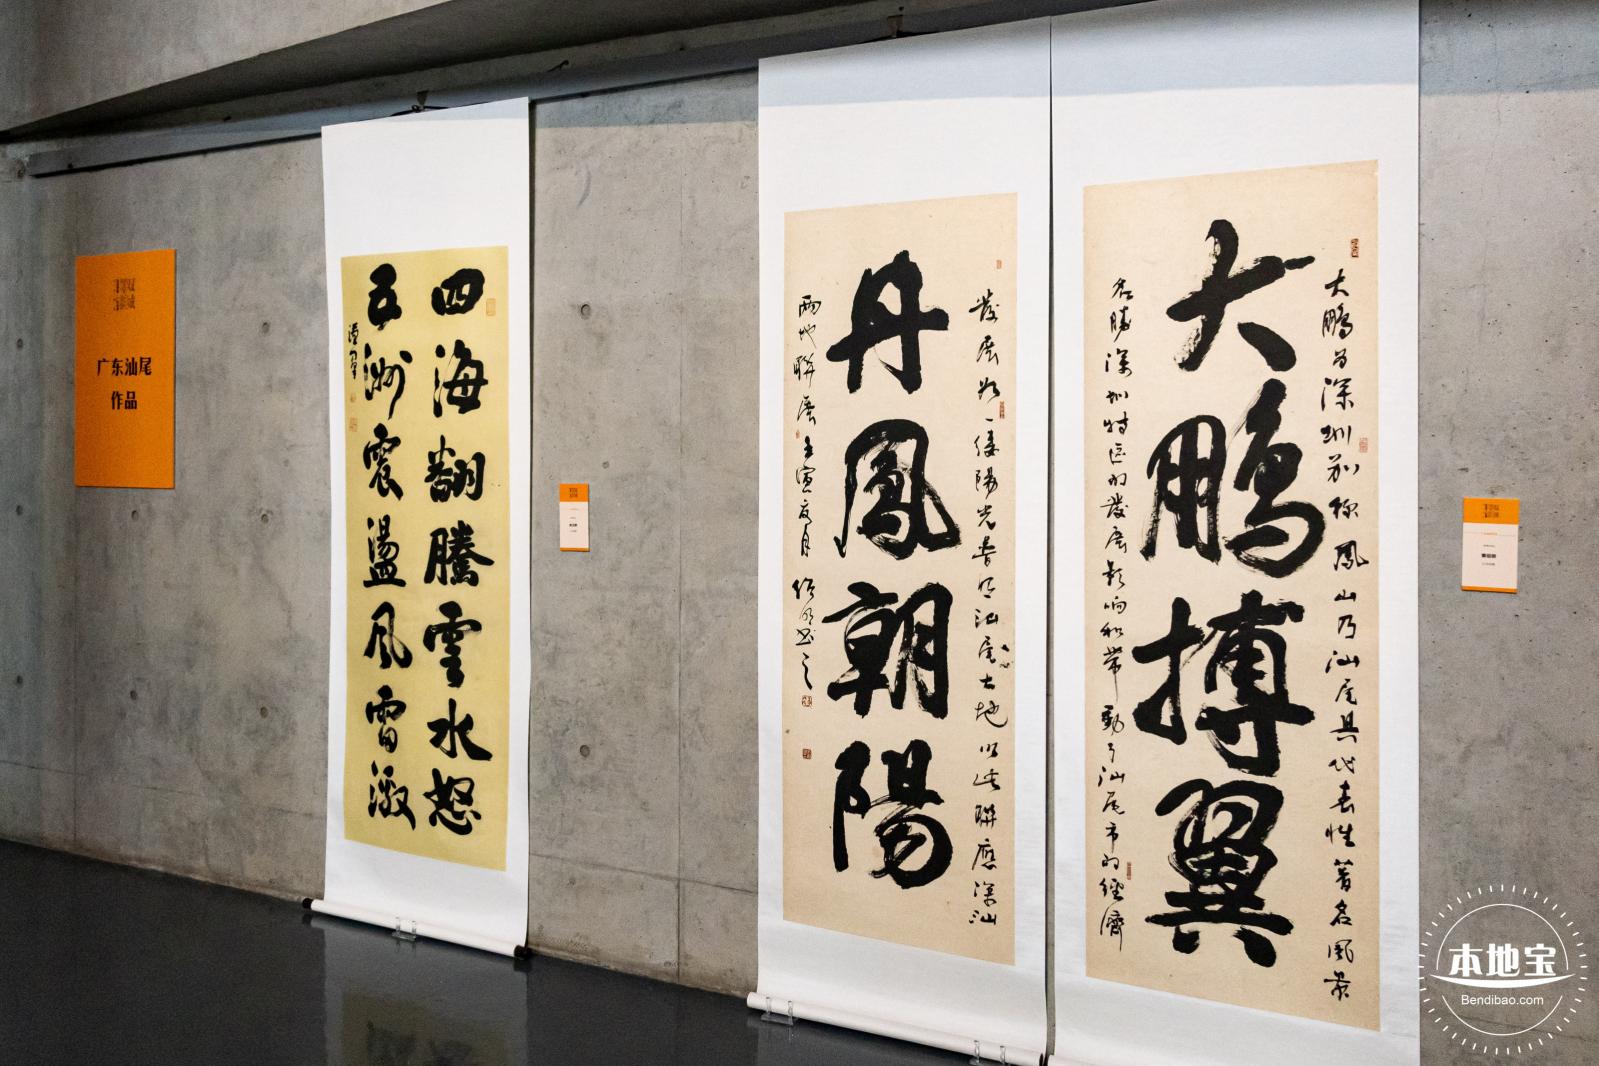 广东汕尾
作品
四海翻騰雲水怒
五洲震盪風雷激
大鹏为深圳别称凤山乃汕尾具代表性著名風景
大鹏搏翼
名勝深圳特区的發展影响和带動了汕尾市的经濟
發展如一缕陽光普照汕尾大地以此联應深汕
丹鳳朝陽
两地聯展壬寅
本地宝
Bendibao.com